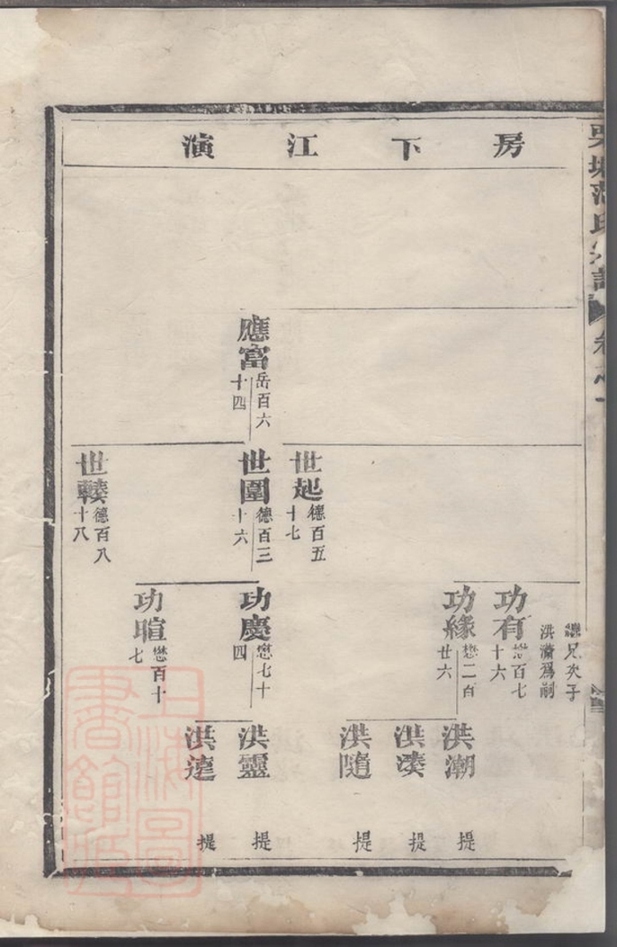 房下江演
應富
岳百六
十四
世起
德百五
十七
世圍
德百三
十六
世
德百八
十八
兄次子
洪瀟爲嗣
功有
懋百七
十六
功緣
懋二百
廿六
功慶
懋七十
四
功暄
懋百十
七
洪潮 提
洪湊 提
洪隨 提
洪靈 提
洪達 提
上海圖書館藏